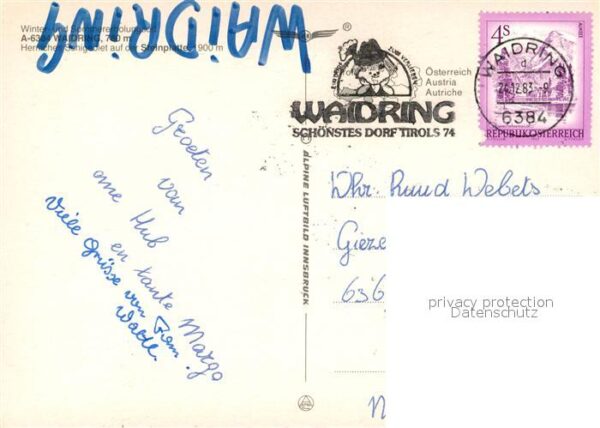 WAIDRING
Winter- und Sommererholungs
A-6384 WAIDRING, 780 m
auf der Steinplatte, 1900 m
Österreich
Austria
Autriche
WAIDRING
SCHÖNSTES DORF TIROLS 74
4S
REPUBLIK ÖSTERREICH
WAIDRING
d
24.12.83 - 9
6384
ALPINE LUFTBILD INNSBRUCK
Groeten
van
ome Hub
en tante Margo
Viele Grüsse von Fam.
Dhr. Ruud Webets
Gieze
636
privacy protection
Datenschutz
N